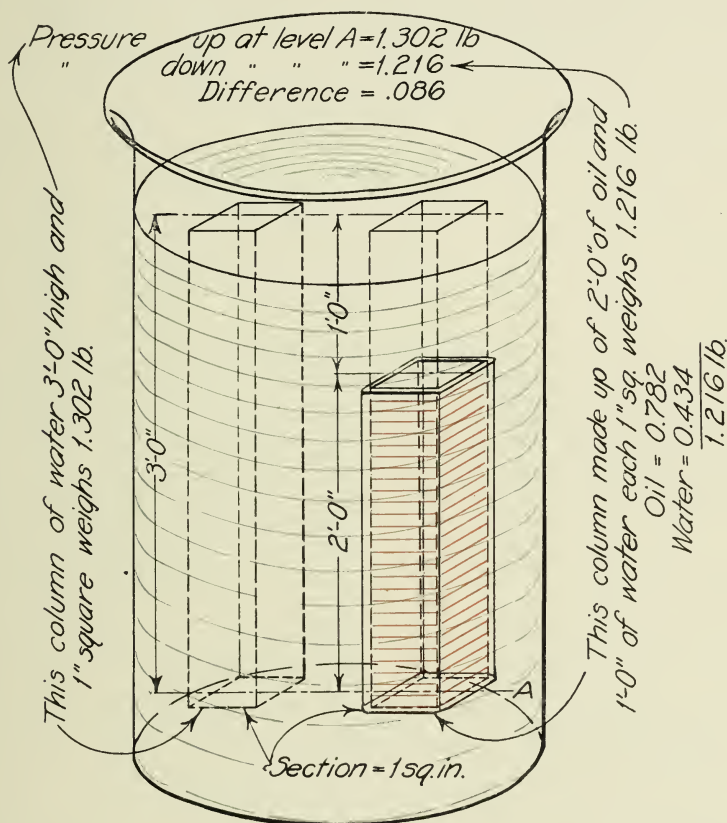 Pressure up at level A=1.302 lb
" down " " " =1.216
Difference = .086
This column of water 3'-0" high and
1" square weighs 1.302 lb.
3'-0"
1'-0"
2'-0"
A
Section = 1 sq. in.
This column made up of 2'-0" of oil and
1'-0" of water each 1" sq. weighs 1.216 lb.
Oil = 0.782
Water = 0.434
1.216 lb.